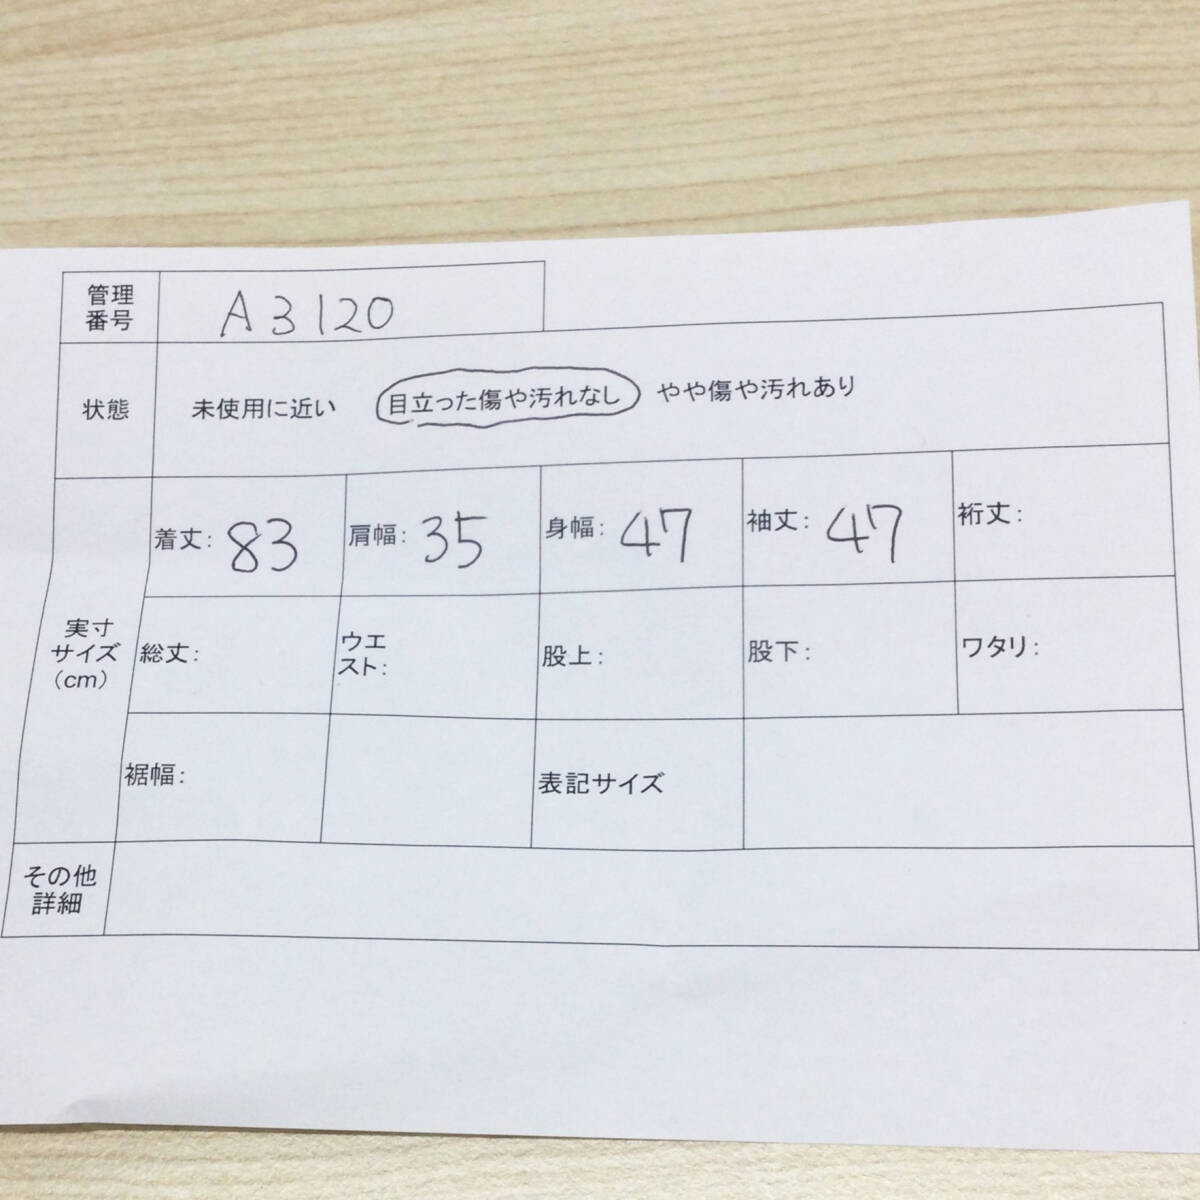 管理
番号
A3120
状態
未使用に近い 目立った傷や汚れなし やや傷や汚れあり
実寸
サイズ
(cm)
着丈: 83 肩幅: 35 身幅: 47 袖丈: 47 裄丈:
総丈: ウエ
スト: 股上: 股下: ワタリ:
裾幅: 表記サイズ
その他
詳細